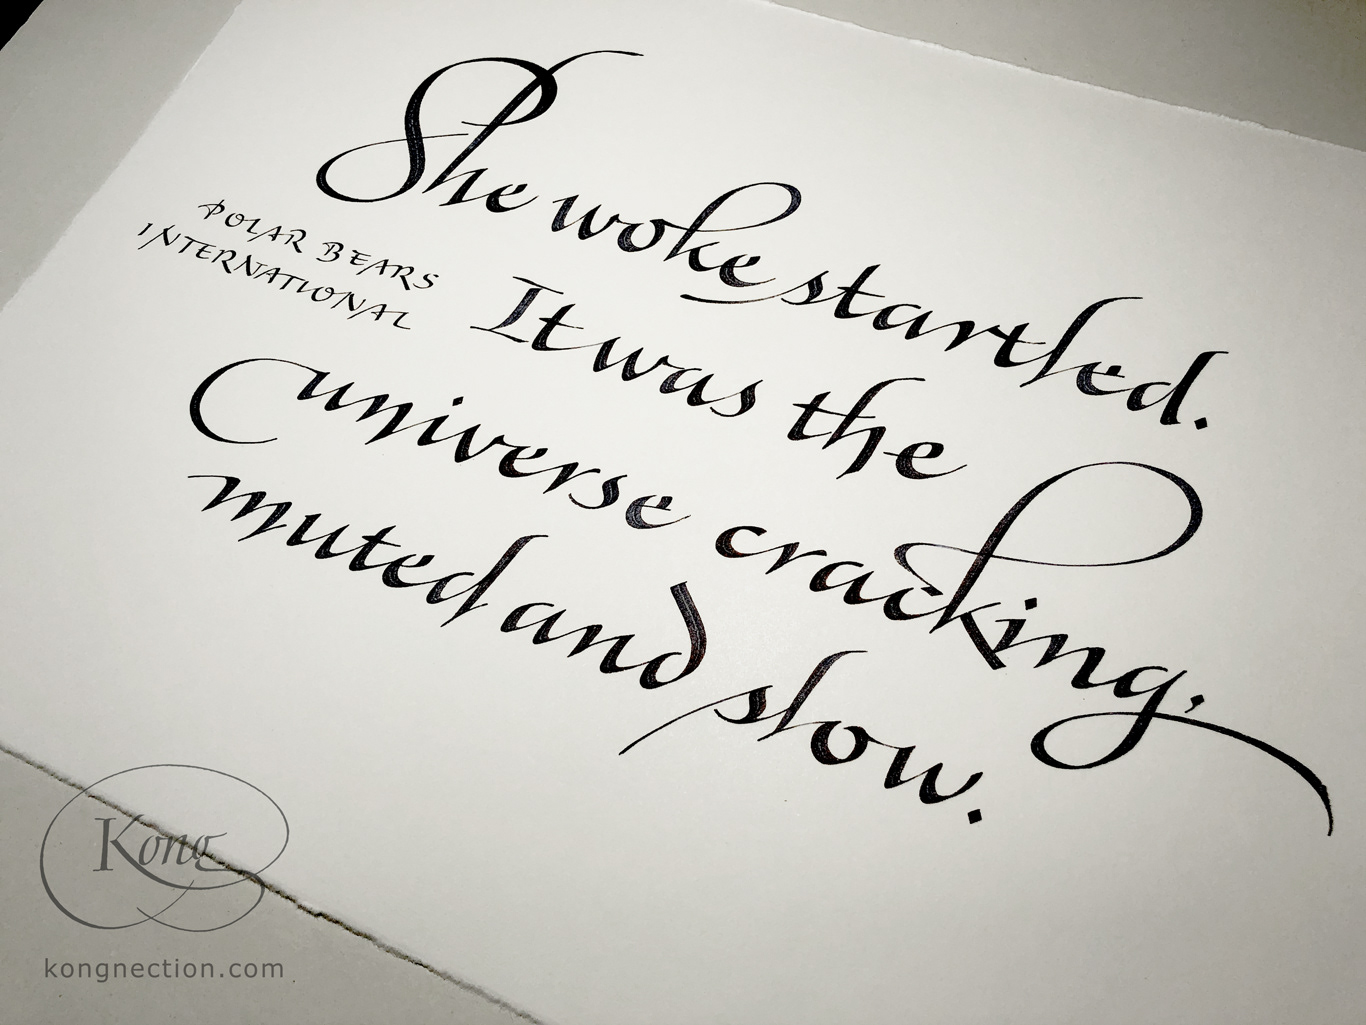 She woke startled.
POLAR BEARS
INTERNATIONAL
It was the
universe cracking,
muted and slow.
Kong
kongnection.com